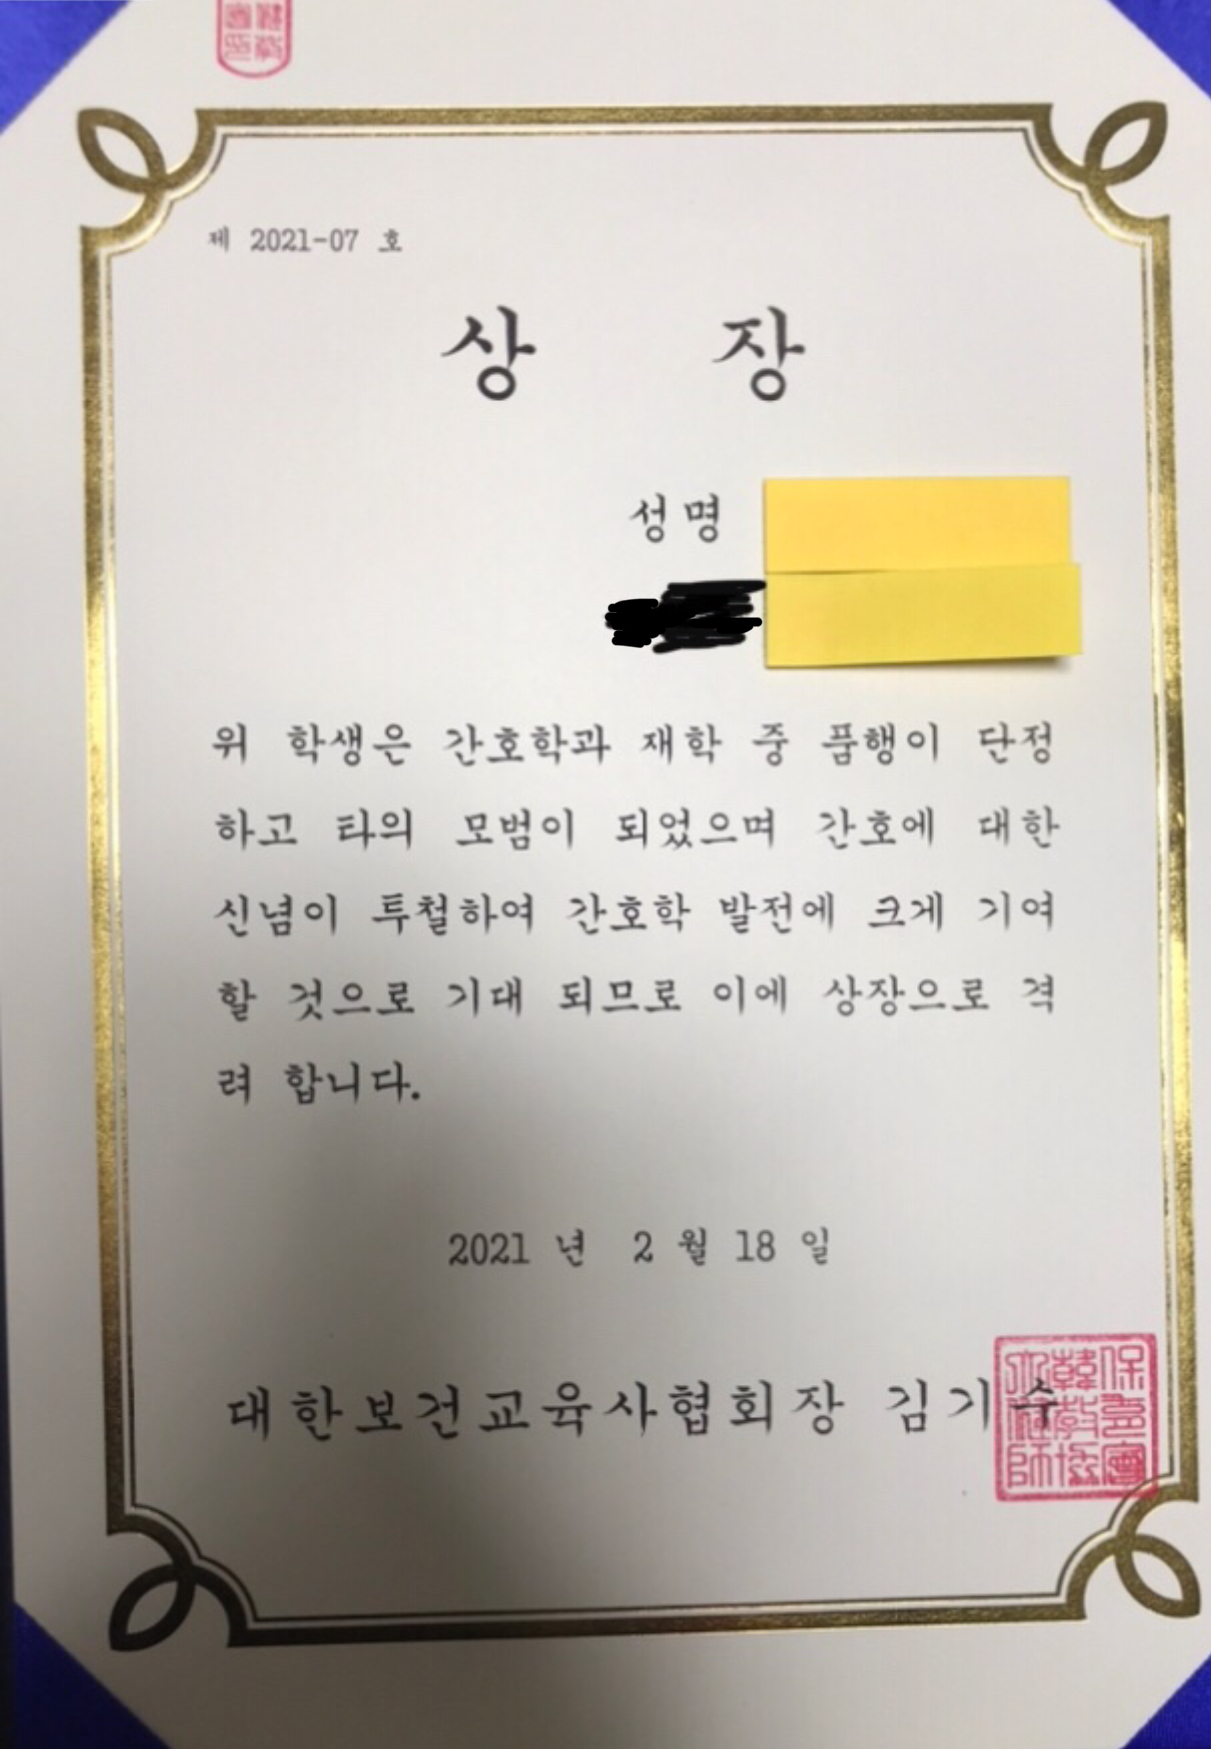 제 2021-07 호
상 장
성명
위 학생은 간호학과 재학 중 품행이 단정
하고 타의 모범이 되었으며 간호에 대한
신념이 투철하여 간호학 발전에 크게 기여
할 것으로 기대 되므로 이에 상장으로 격
려 합니다.
2021 년 2 월 18 일
대한보건교육사협회장 김기수